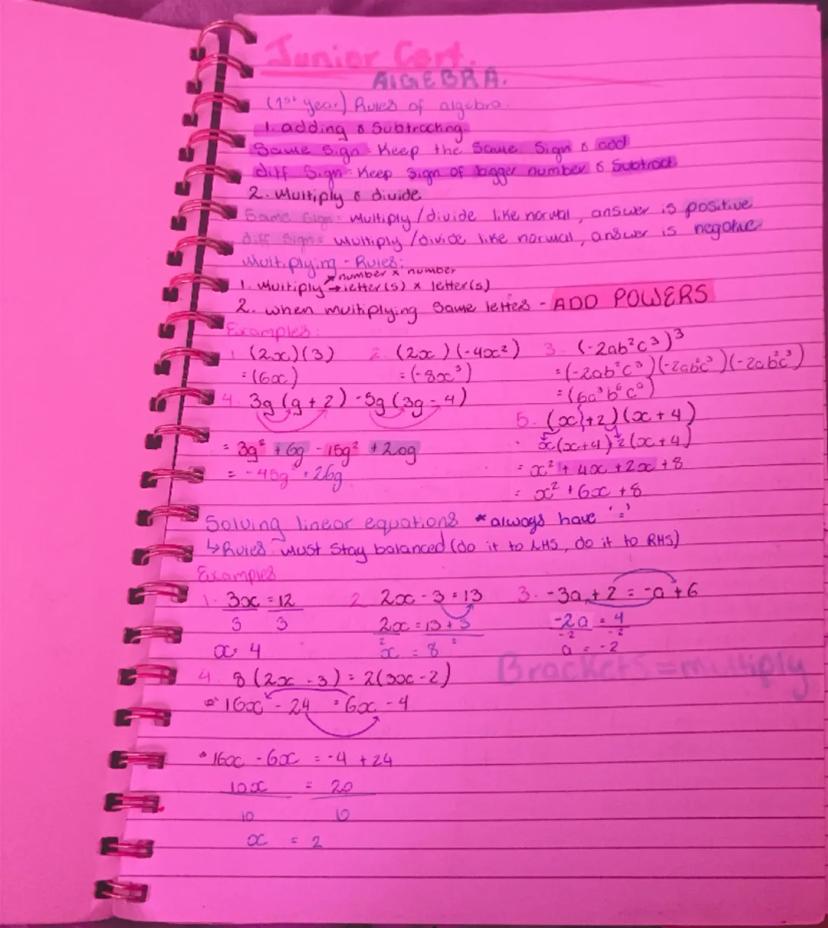 Junior Cert.
ALGEBRA.
(1st year) Rules of algebra.
1. adding & Subtracting
Same Sign = Keep the Same Sign & add
diff Sign = Keep Sign of bigger number & Subtract
2. Multiply & divide
Same Sign = Multiply / divide like normal, answer is positive
diff Sign = Multiply / divide like normal, answer is negative
Multiplying - Rules:
number x number
1. Multiply → letter(s) x letter(s)
2. When multiplying Same letters - ADD POWERS
Examples:
1. (2x)(3) 2. (2x)(-4x²) 3. (-2ab²c³)³
= (6x) = (-8x³) = (-2ab²c³)(-2ab²c³)(-2ab²c³)
= (6a³b⁶c⁹)
4. 3g(g + 2) - 5g(3g - 4)
5. (x + 2)(x + 4)
= 3g² + 6g - 15g² + 20g
x(x+4) 2(x+4)
= -45g² + 26g
= x² + 4x + 2x + 8
= x² + 6x + 8
Solving linear equations * always have '='
↳ Rules Must Stay balanced (do it to LHS, do it to RHS)
Examples
1. 3x = 12 2. 2x - 3 = 13 3. -3a + 2 = -a + 6
3 3 2x = 13 + 3 -2a = 4
2 2 -2 -2
x = 4 x = 8 a = -2
4. 8(2x - 3) = 2(3x - 2) Brackets = multiply
= 16x - 24 = 6x - 4
16x - 6x = -4 + 24
10x = 20
10 10
x = 2